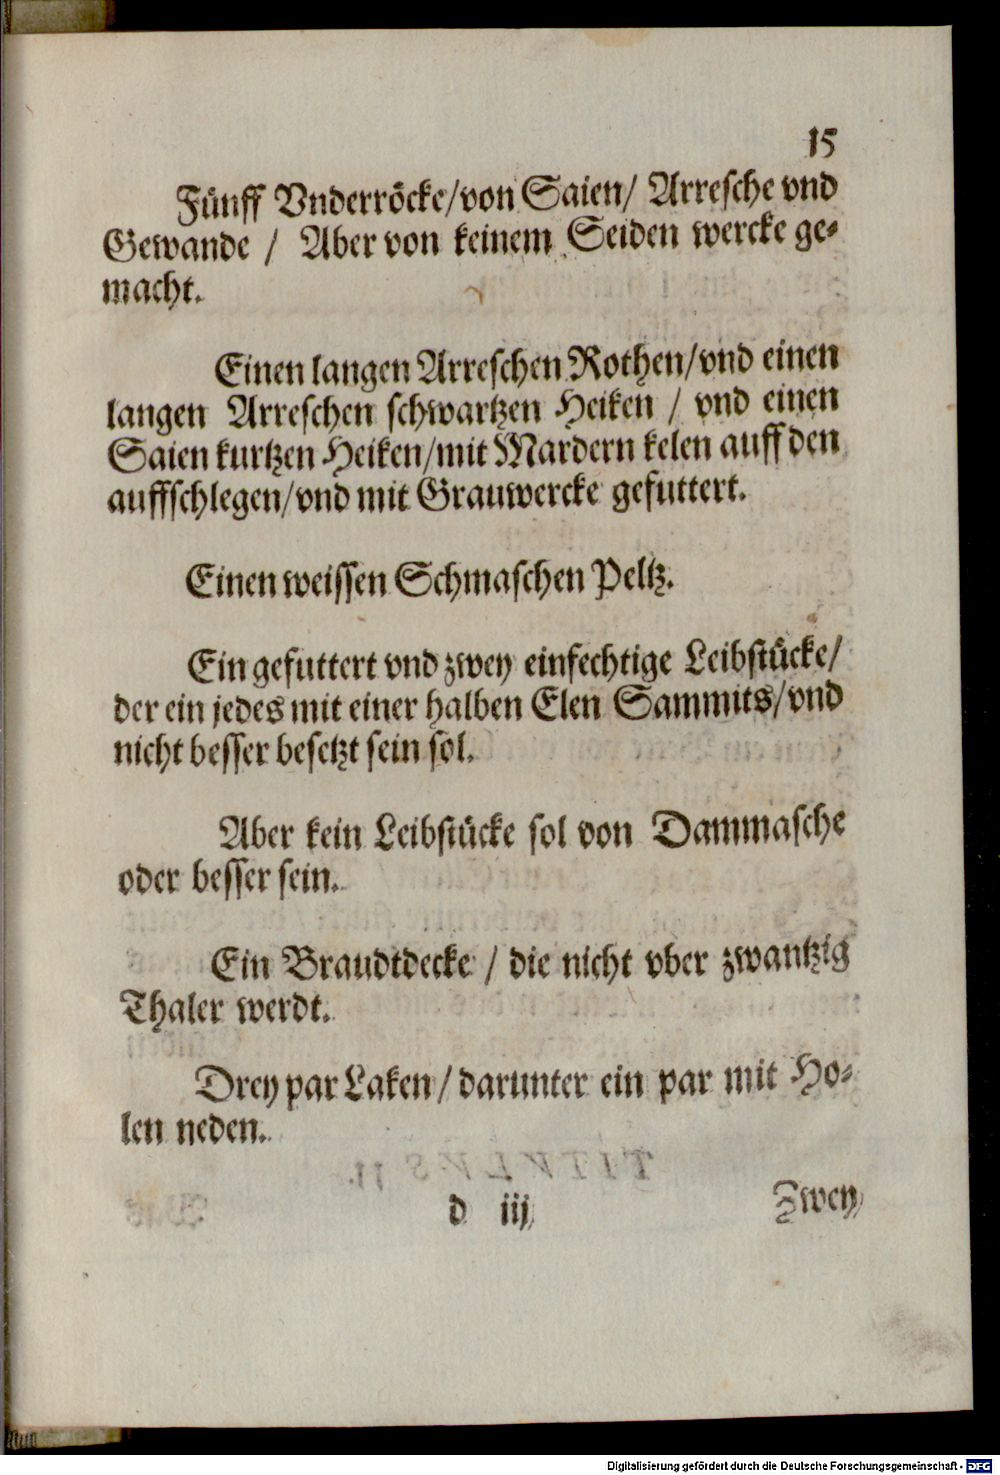 15
Fünff Vnderröcke/von Saien/ Arresche vnd
Gewande / Aber von keinem Seiden wercke ge⸗
macht.
Einen langen Arreschen Rothen/vnd einen
langen Arreschen schwartzen Heiken / vnd einen
Saien kurtzen Heiken/mit Mardern kelen auff den
auffschlegen/vnd mit Grauwercke gefuttert.
Einen weissen Schmaschen Peltz.
Ein gefuttert vnd zwey einfechtige Leibstücke/
der ein jedes mit einer halben Elen Sammits/vnd
nicht besser besetzt sein sol.
Aber kein Leibstücke sol von Dammasche
oder besser sein.
Ein Braudtdecke / die nicht vber zwantzig
Thaler werdt.
Drey par Laken/darunter ein par mit Ho⸗
len neden.
d iij
Zwey
Digitalisierung gefördert durch die Deutsche Forschungsgemeinschaft - DFG